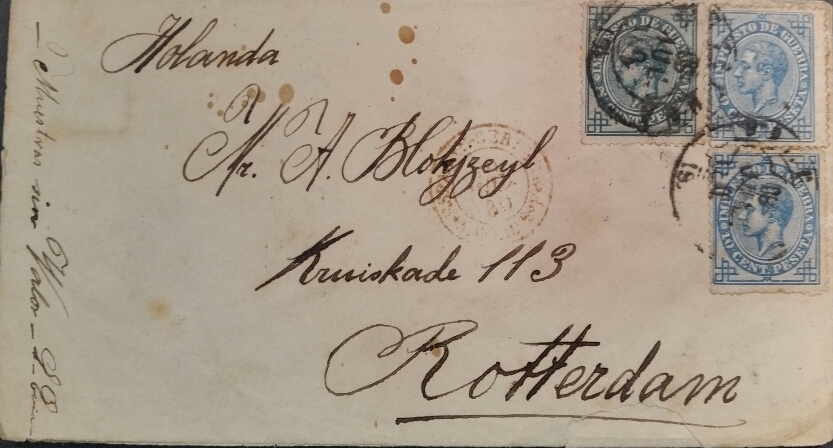 Holanda
Mr. A. Blokzeyl
Kruiskade 113
Rotterdam
— Muestras sin Valor —
IMPUESTO DE GUERRA
IMPUESTO DE GUERRA
IMPUESTO DE GUERRA
10 CENT. PESETA